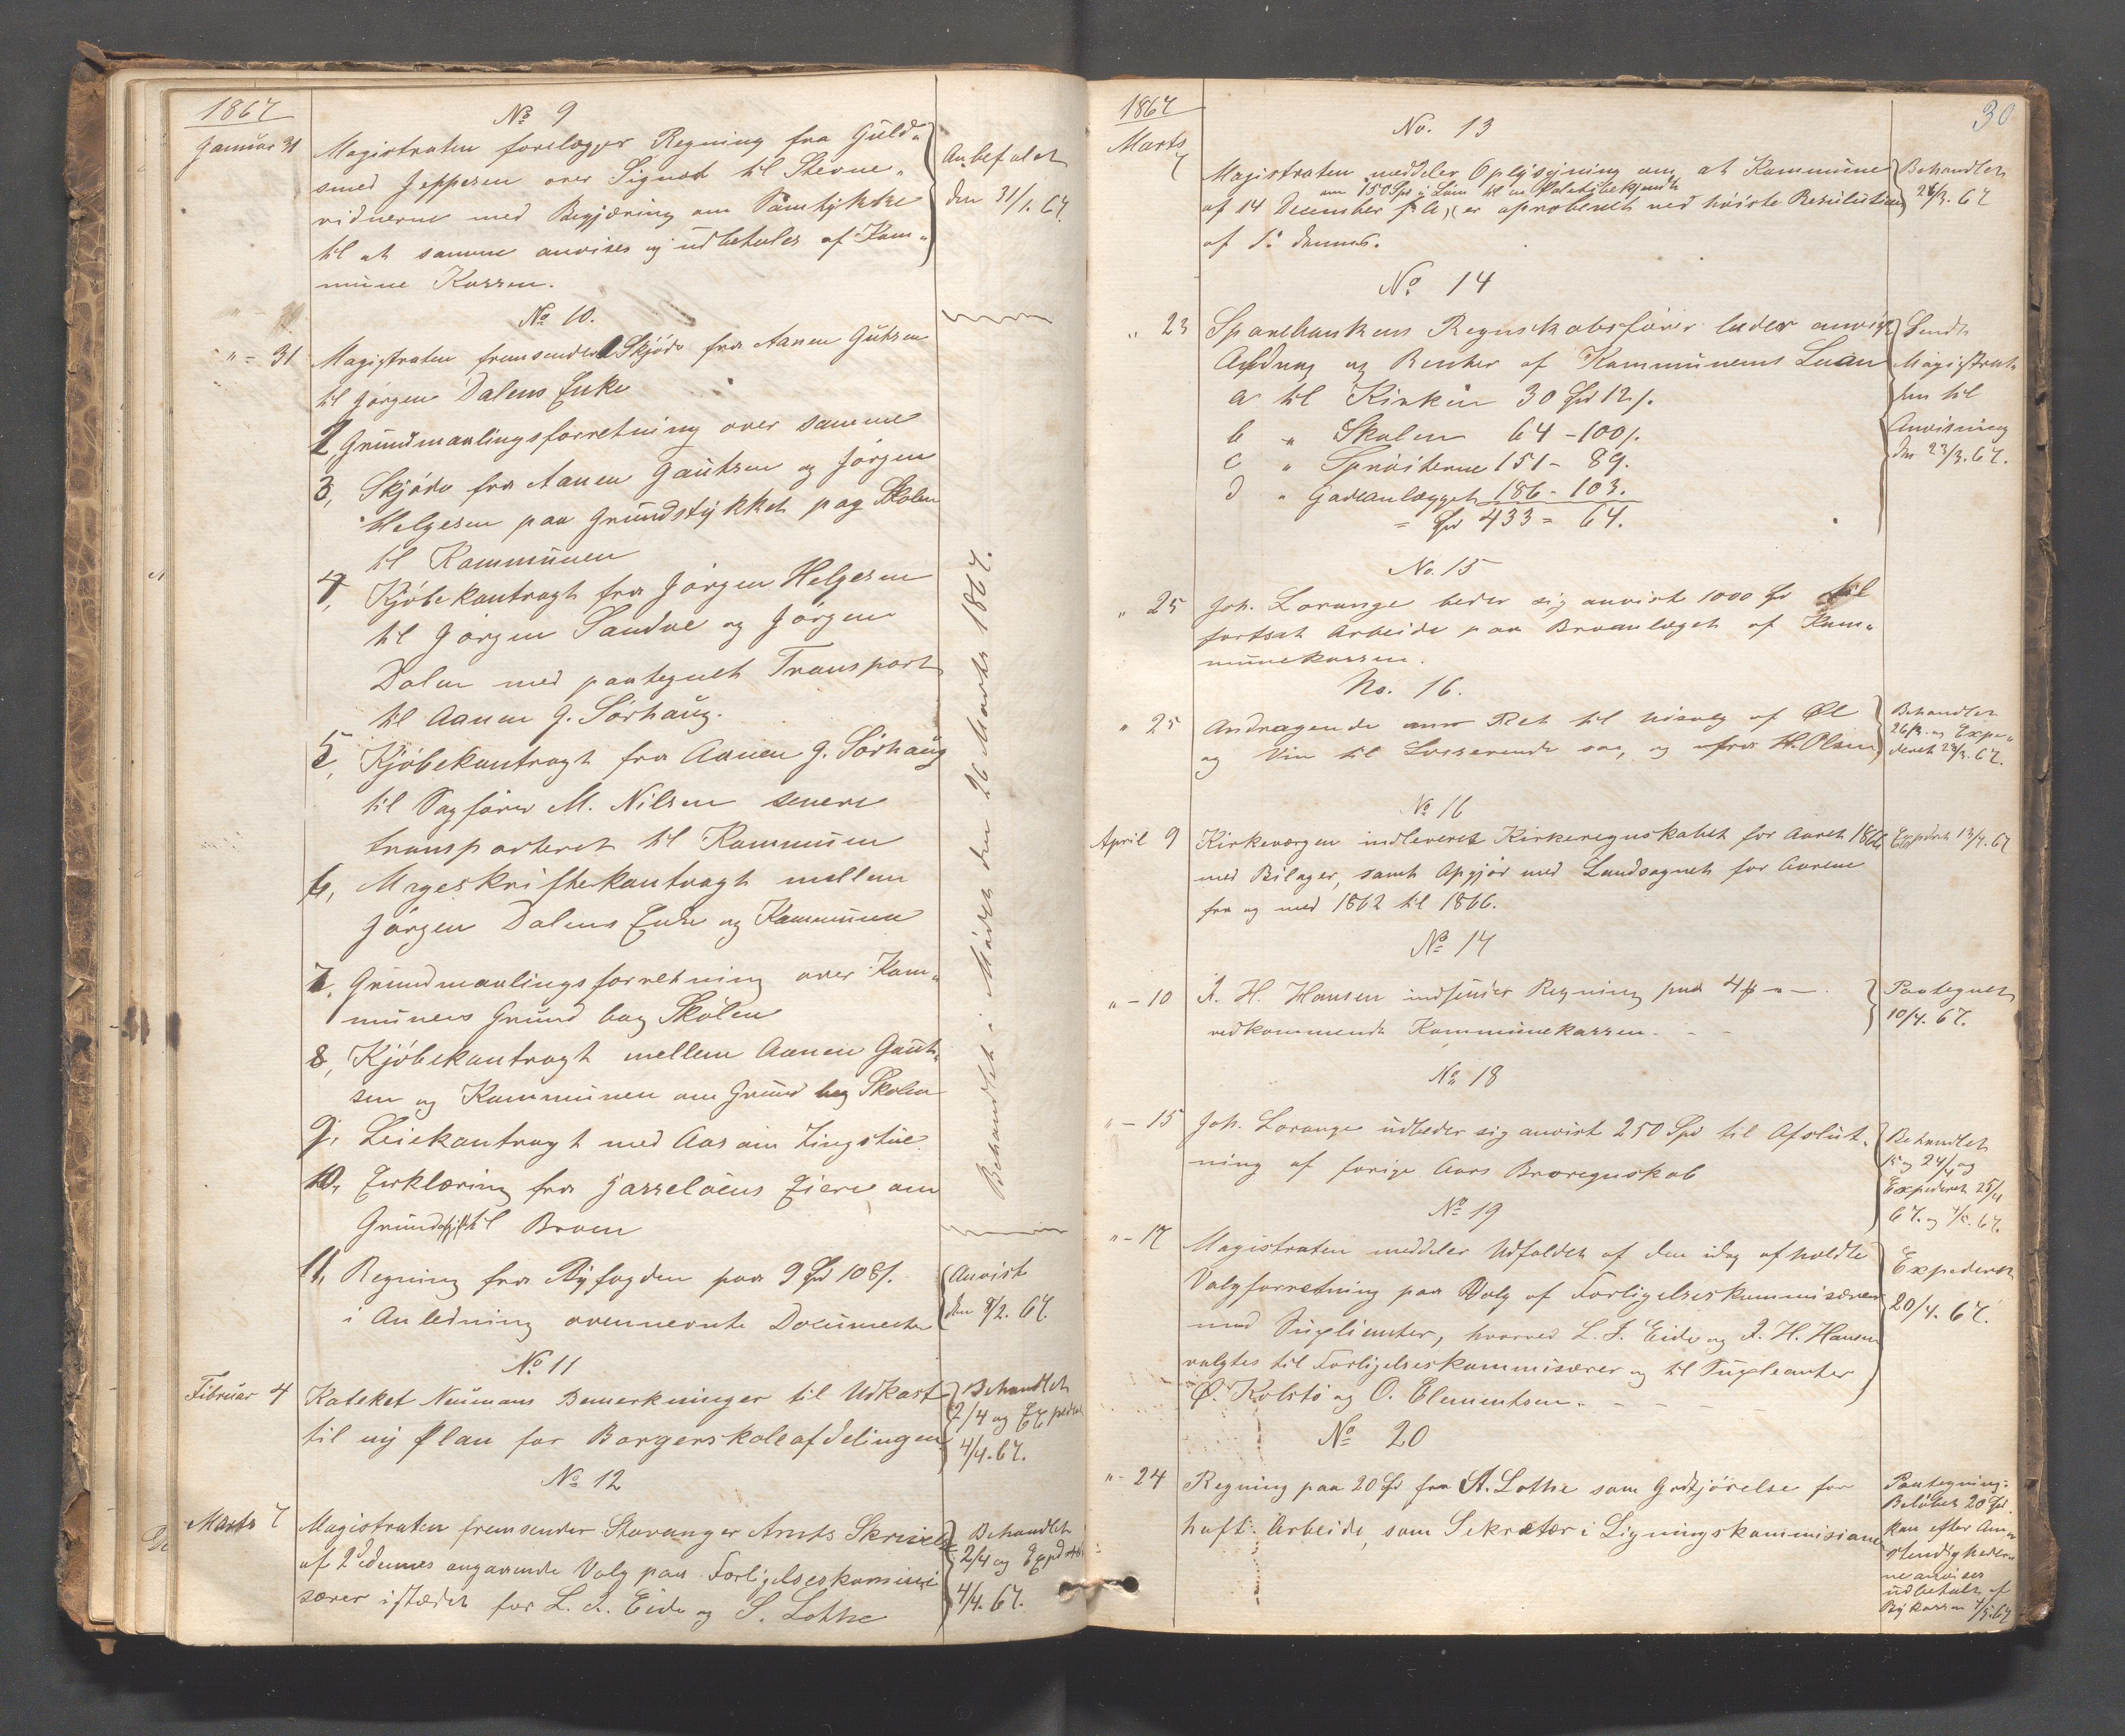 1867
No 9
Januar 31
Magistraten forelægger Regning fra Guld„
smed Jeppesen over Signet til Stevne„
vidnerne med Begjæring om Samtykke
til at samme anvises og udbetales af Kom„
mune Kassen.
Anbefalet
den 31/1. 67.
No 10.
" = 31
Magistraten fremsender 1 Skjøde fra Aanen Gutsen
til Jørgen Dalens Enke
2, Grundmaalingsforretning over samme
3, Skjøde fra Aanen Gautsen og Jørgen
Helgesen paa Grundstykket bag Skolen
til Kommunen
4, Kjøbekontragt fra Jørgen Helgesen
til Jørgen Sandve og Jørgen
Dalen med paategnet Transport
til Aanen G. Sørhaug.
5, Kjøbekontragt fra Aanen G. Sørhaug
til Sagfører M. Nilsen senere
transporteret til Kommunen
6, Mageskriftekontragt mellem
Jørgen Dalens Enke og Kommunen
7, Grundmaalingsforretning over Kom„
munens Grund bag Skolen
8, Kjøbekontragt mellem Aanen Gaut„
sen og Kommunen om Grund bag Skolen
9, Leiekontragt med Aas om Tingstue
10, Erklæring fra Hasseløens Eiere om
Grund til Broen
Behandlet i Mødet den 26 Marts 1867.
11, Regning fra Byfogden paa 9 Spd 108 s.
i Anledning ovennevnte Documenter
Anvist
den 9/2. 67.
No 11
Februar 4
Kateket Neumans Bemerkninger til Udkast
til ny Plan for Borgerskoleafdelingen
Behandlet
2/4 og Exped
4/4. 67.
No 12
Marts 7
Magistraten fremsender Stavanger Amts Skrivelse
af 2 dennes angaaende Valg paa Forligelseskommis
særer istædet for L. J. Eide og S. Lothe
Behandlet
2/4 og Exped
4/4. 67.
30
1867
No. 13
Marts
7
Magistraten meddeler Oplysning om at Kommune
om 150 Spd i Løn til en Politibetjendt
af 14 December f. A. er aproberet ved høieste Resulution
af 1. dennes.
Behandlet
26/3. 67
No 14
„ 23
Sparebankens Regnskabsfører beder anvist
Afdrag og Renter af Kommunens Laan
a til Kirken 30 Spd 12 s.
b " Skolen 64 - 100 s.
c " Sprøiterne 151 - 89.
d " Gadeanlægget 186 - 103.
= Spd 433 = 64.
Sendt
Magistrat„
ten til
Anvisning
den 23/3. 67.
No. 15
„ 25
Joh. Lorange beder sig anvist 1000 Spd til
fortsat Arbeide paa Broanlæget af Kom„
munekassen.
No. 16.
„ 25
Andragende om Ret til Udsalg af Øl
og Vin til Lossesende saa, og fra H. Olsen
Behandlet
26/3. og Expe„
deret 28/3. 67.
No 16
April 9
Kirkeværgen indleveret Kirkeregnskabet for Aaret 1866
med Bilager, samt Opgjør med Landsognet for Aarene
fra og med 1862 til 1866.
Expederet 13/4. 67
No 17
„ - 10
J. H. Hansen indsender Regning paa 4
vedkommende Kommunekassen. - -
Paategnet
10/4. 67.
No 18
„ - 15
Joh. Lorange udbeder sig anvist 250 Spd til Afslut„
ning af forige Aars Broregnskab
Behandlet
15 og 24/4 og
Expederet 25/4
67. og 4/5. 67.
No 19
„ - 17
Magistraten meddeler Udfaldet af den idag afholdte
Valgforretning paa Valg af Forligelseskommisærer
med Suplianter, hvorved L. J. Eide og J. H. Hansen
valgtes til Forligelseskommisærer og til Supleanter
Ø. Kolstø og O. Clementsen. - - - -
Expederet
20/4. 67.
No 20
„ - 24
Regning paa 20 Spd fra A. Lothe som Godtjørelse for
haft Arbeide, som Sekretær i Ligningskommisionen
Paategning:
Beløbet 20 Spd
kan efter Om„
stendigheder„
ne anvises
udbetalt af
Bykassen 4/5. 67